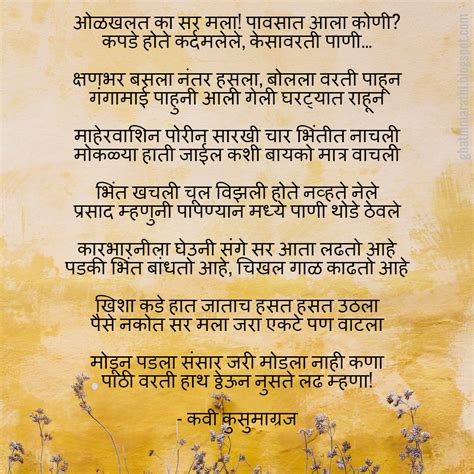 ओळखलत का सर मला! पावसात आला कोणी?
कपडे होते कर्दमलेले, केसावरती पाणी...
क्षणभर बसला नंतर हसला, बोलला वरती पाहून
गंगामाई पाहुनी आली गेली घरट्यात राहून
माहेरवाशिन पोरीन सारखी चार भिंतीत नाचली
मोकळ्या हाती जाईल कशी बायको मात्र वाचली
भिंत खचली चूल विझली होते नव्हते नेले
प्रसाद म्हणुनी पापण्यान मध्ये पाणी थोडे ठेवले
कारभारनीला घेउनी संगे सर आता लढतो आहे
पडकी भिंत बांधतो आहे, चिखल गाळ काढतो आहे
खिशा कडे हात जाताच हसत हसत उठला
पैसे नकोत सर मला जरा एकटे पण वाटला
मोडून पडला संसार जरी मोडला नाही कणा
पाठी वरती हाथ ठेऊन नुसते लढ म्हणा!
- कवी कुसुमाग्रज